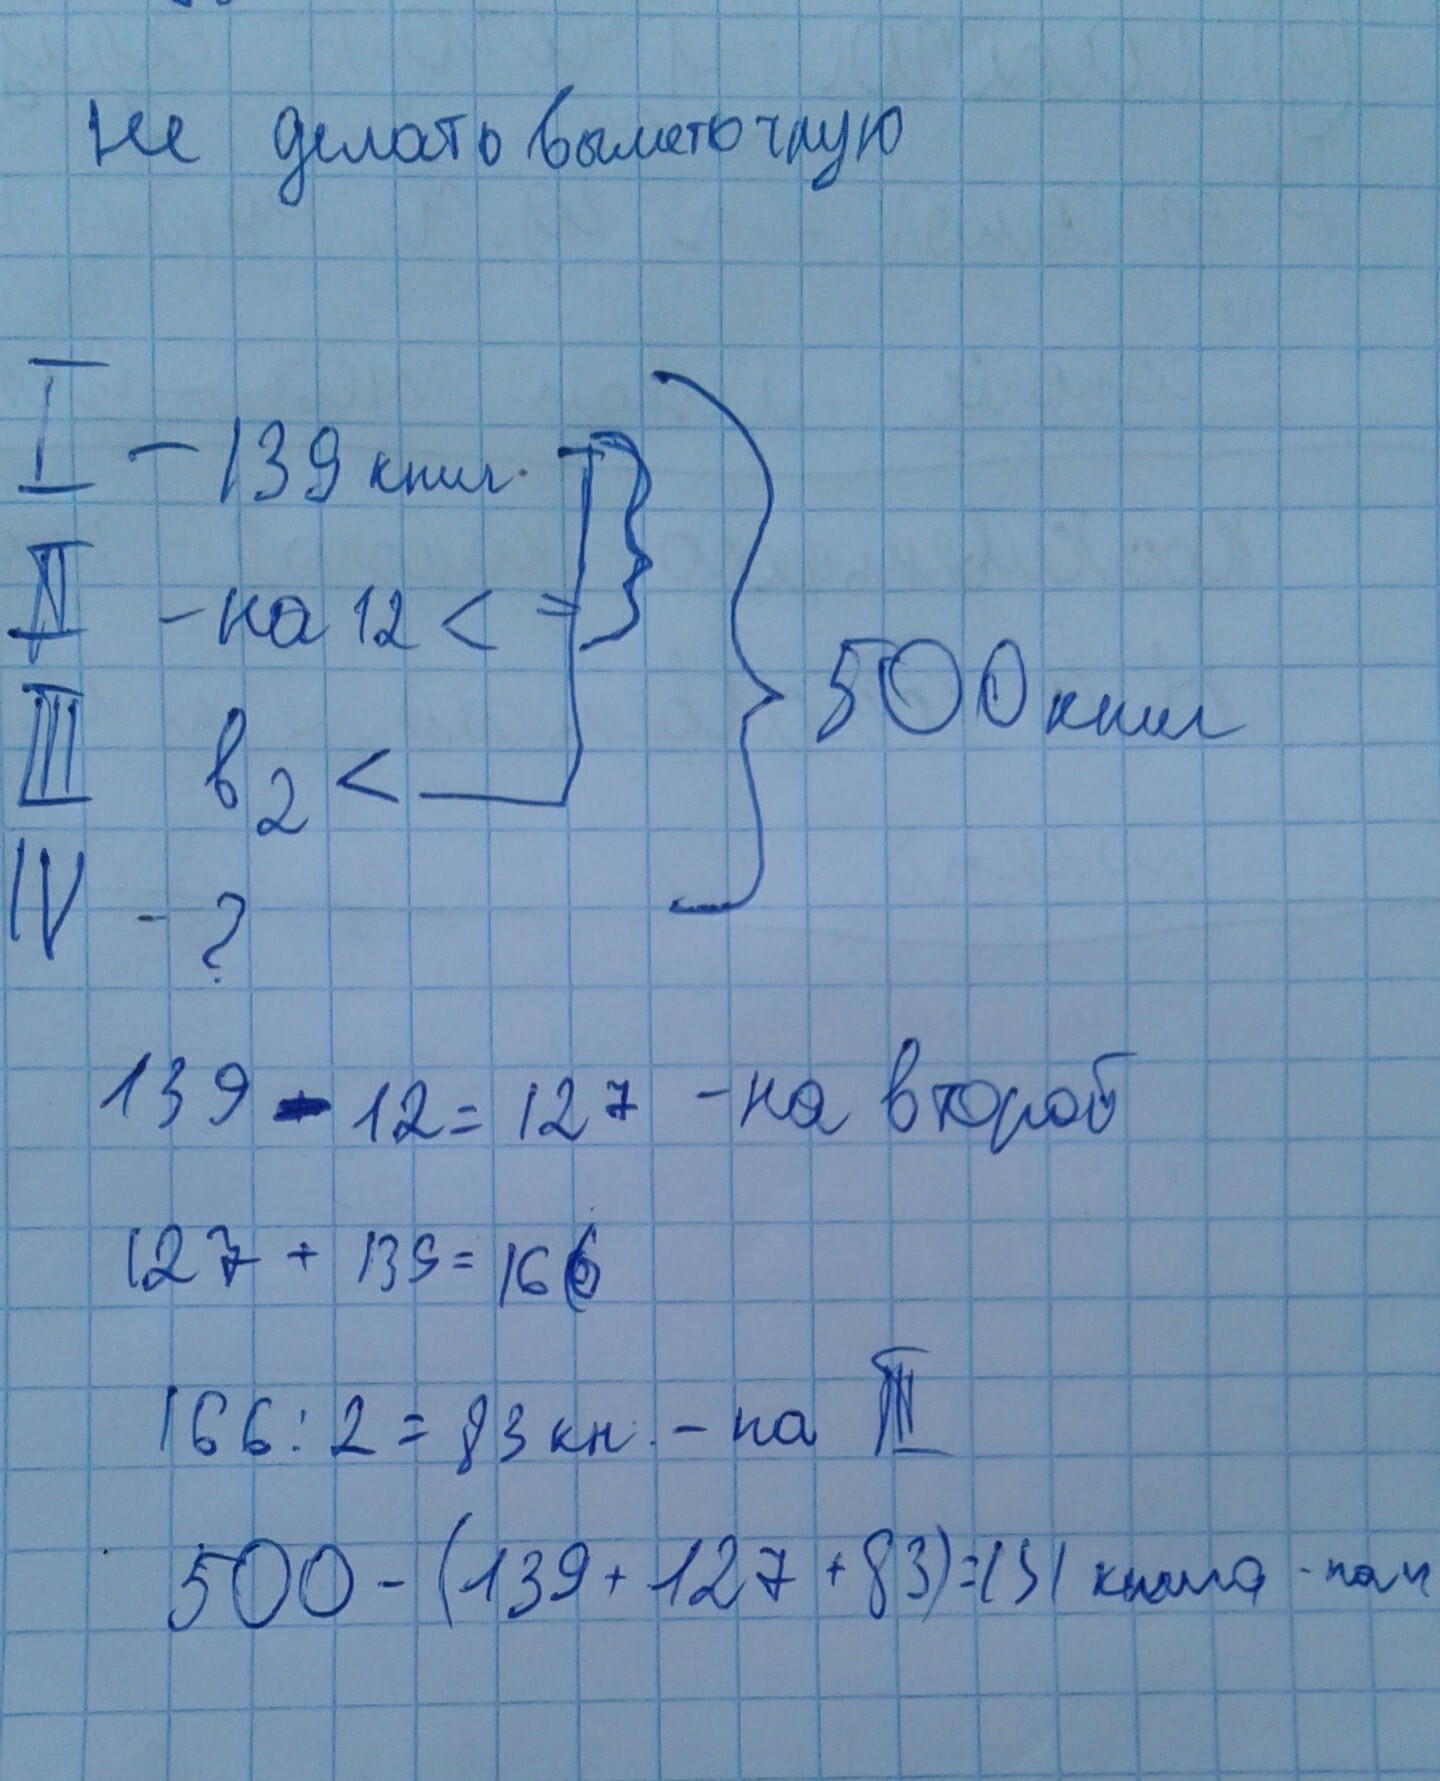 не делать
I – 139 книг.
II – на 12 <
III в 2 <
IV – ?
500 книг
139 - 12 = 127 – на второй
127 + 139 = 166
166 : 2 = 83 кн. – на III
500 – (139 + 127 + 83) = 151 книга -